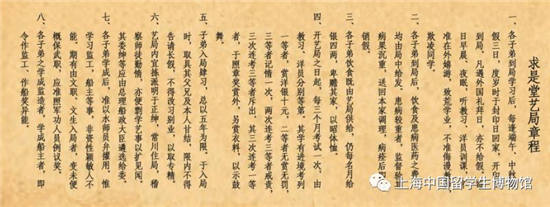 求是堂艺局章程
一、各子弟到局学习后，每逢端午、中秋给
假三日，度岁时于封印日回家，开印日
到局。凡遇外国礼拜日，亦不给假。每
日早晨、夜眠，听教习、洋员训课，不
准在外嬉游，致荒学业；不准侮慢教师，
欺凌同学。
二、各子弟到局后，饮食及患病医药之费，
均由局中给发。患病较重者，监督验其
病果沉重，送回本家调理，病痊后即行
销假。
三、各子弟饮食既由艺局供给，仍每名月给
银四两，俾赡其家，以昭体恤。
四、开艺局之日起，每三个月考试一次，由
教习、洋员分别等第。其学有进境考列
一等者，赏洋银十元，二等者无赏无罚，
三等者记惰一次，两次连考三等者戒责，
三次连考三等者斥出。其三次连考一等
者，于照章奖赏外，另赏衣料，以示鼓
舞。
五、子弟入局肄习，总以五年为限。于入局
时，取具其父兄及本人甘结，限内不得
告请长假，不得改习别业，以取专精。
六、艺局内宜拣派明干正绅，常川住局，稽
察师徒勤惰，亦便剽学艺事以扩见闻。
其委绅等应由总理船政大臣遴选给委。
七、各子弟学成后，准以水师员弁擢用。惟
学习监工、船主等事，非资性颖敏人不
能。期有由文职、文生入局者，变未便
概保武职，应准照军功人员例议奖。
八、各子弟之学成监造者，学成船主者，即
令作监工、作船奖异能。
上海中国留学生博物馆